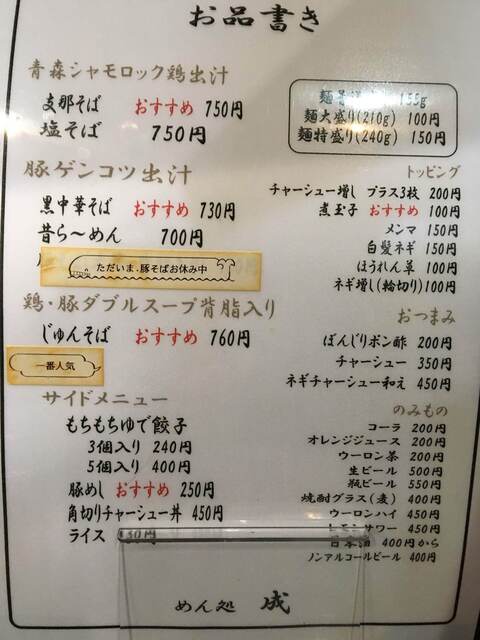 お品書き
青森シャモロック鶏出汁
支那そば おすすめ 750円
塩そば 750円
麺 155g
麺大盛り(210g) 100円
麺特盛り(240g) 150円
豚ゲンコツ出汁
黒中華そば おすすめ 730円
昔ら〜めん 700円
ただいま、豚そばお休み中
鶏・豚ダブルスープ背脂入り
じゅんそば おすすめ 760円
一番人気
サイドメニュー
もちもちゆで餃子
3個入り 240円
5個入り 400円
豚めし おすすめ 250円
角切りチャーシュー丼 450円
ライス 130円
トッピング
チャーシュー増し プラス3枚 200円
煮玉子 おすすめ 100円
メンマ 150円
白髪ネギ 150円
ほうれん草 100円
ネギ増し(輪切り) 100円
おつまみ
ぼんじりポン酢 200円
チャーシュー 350円
ネギチャーシュー和え 450円
のみもの
コーラ 200円
オレンジジュース 200円
ウーロン茶 200円
生ビール 500円
瓶ビール 550円
焼酎グラス(麦) 400円
ウーロンハイ 450円
レモンサワー 450円
日本酒 400円から
ノンアルコールビール 400円
めん処 成